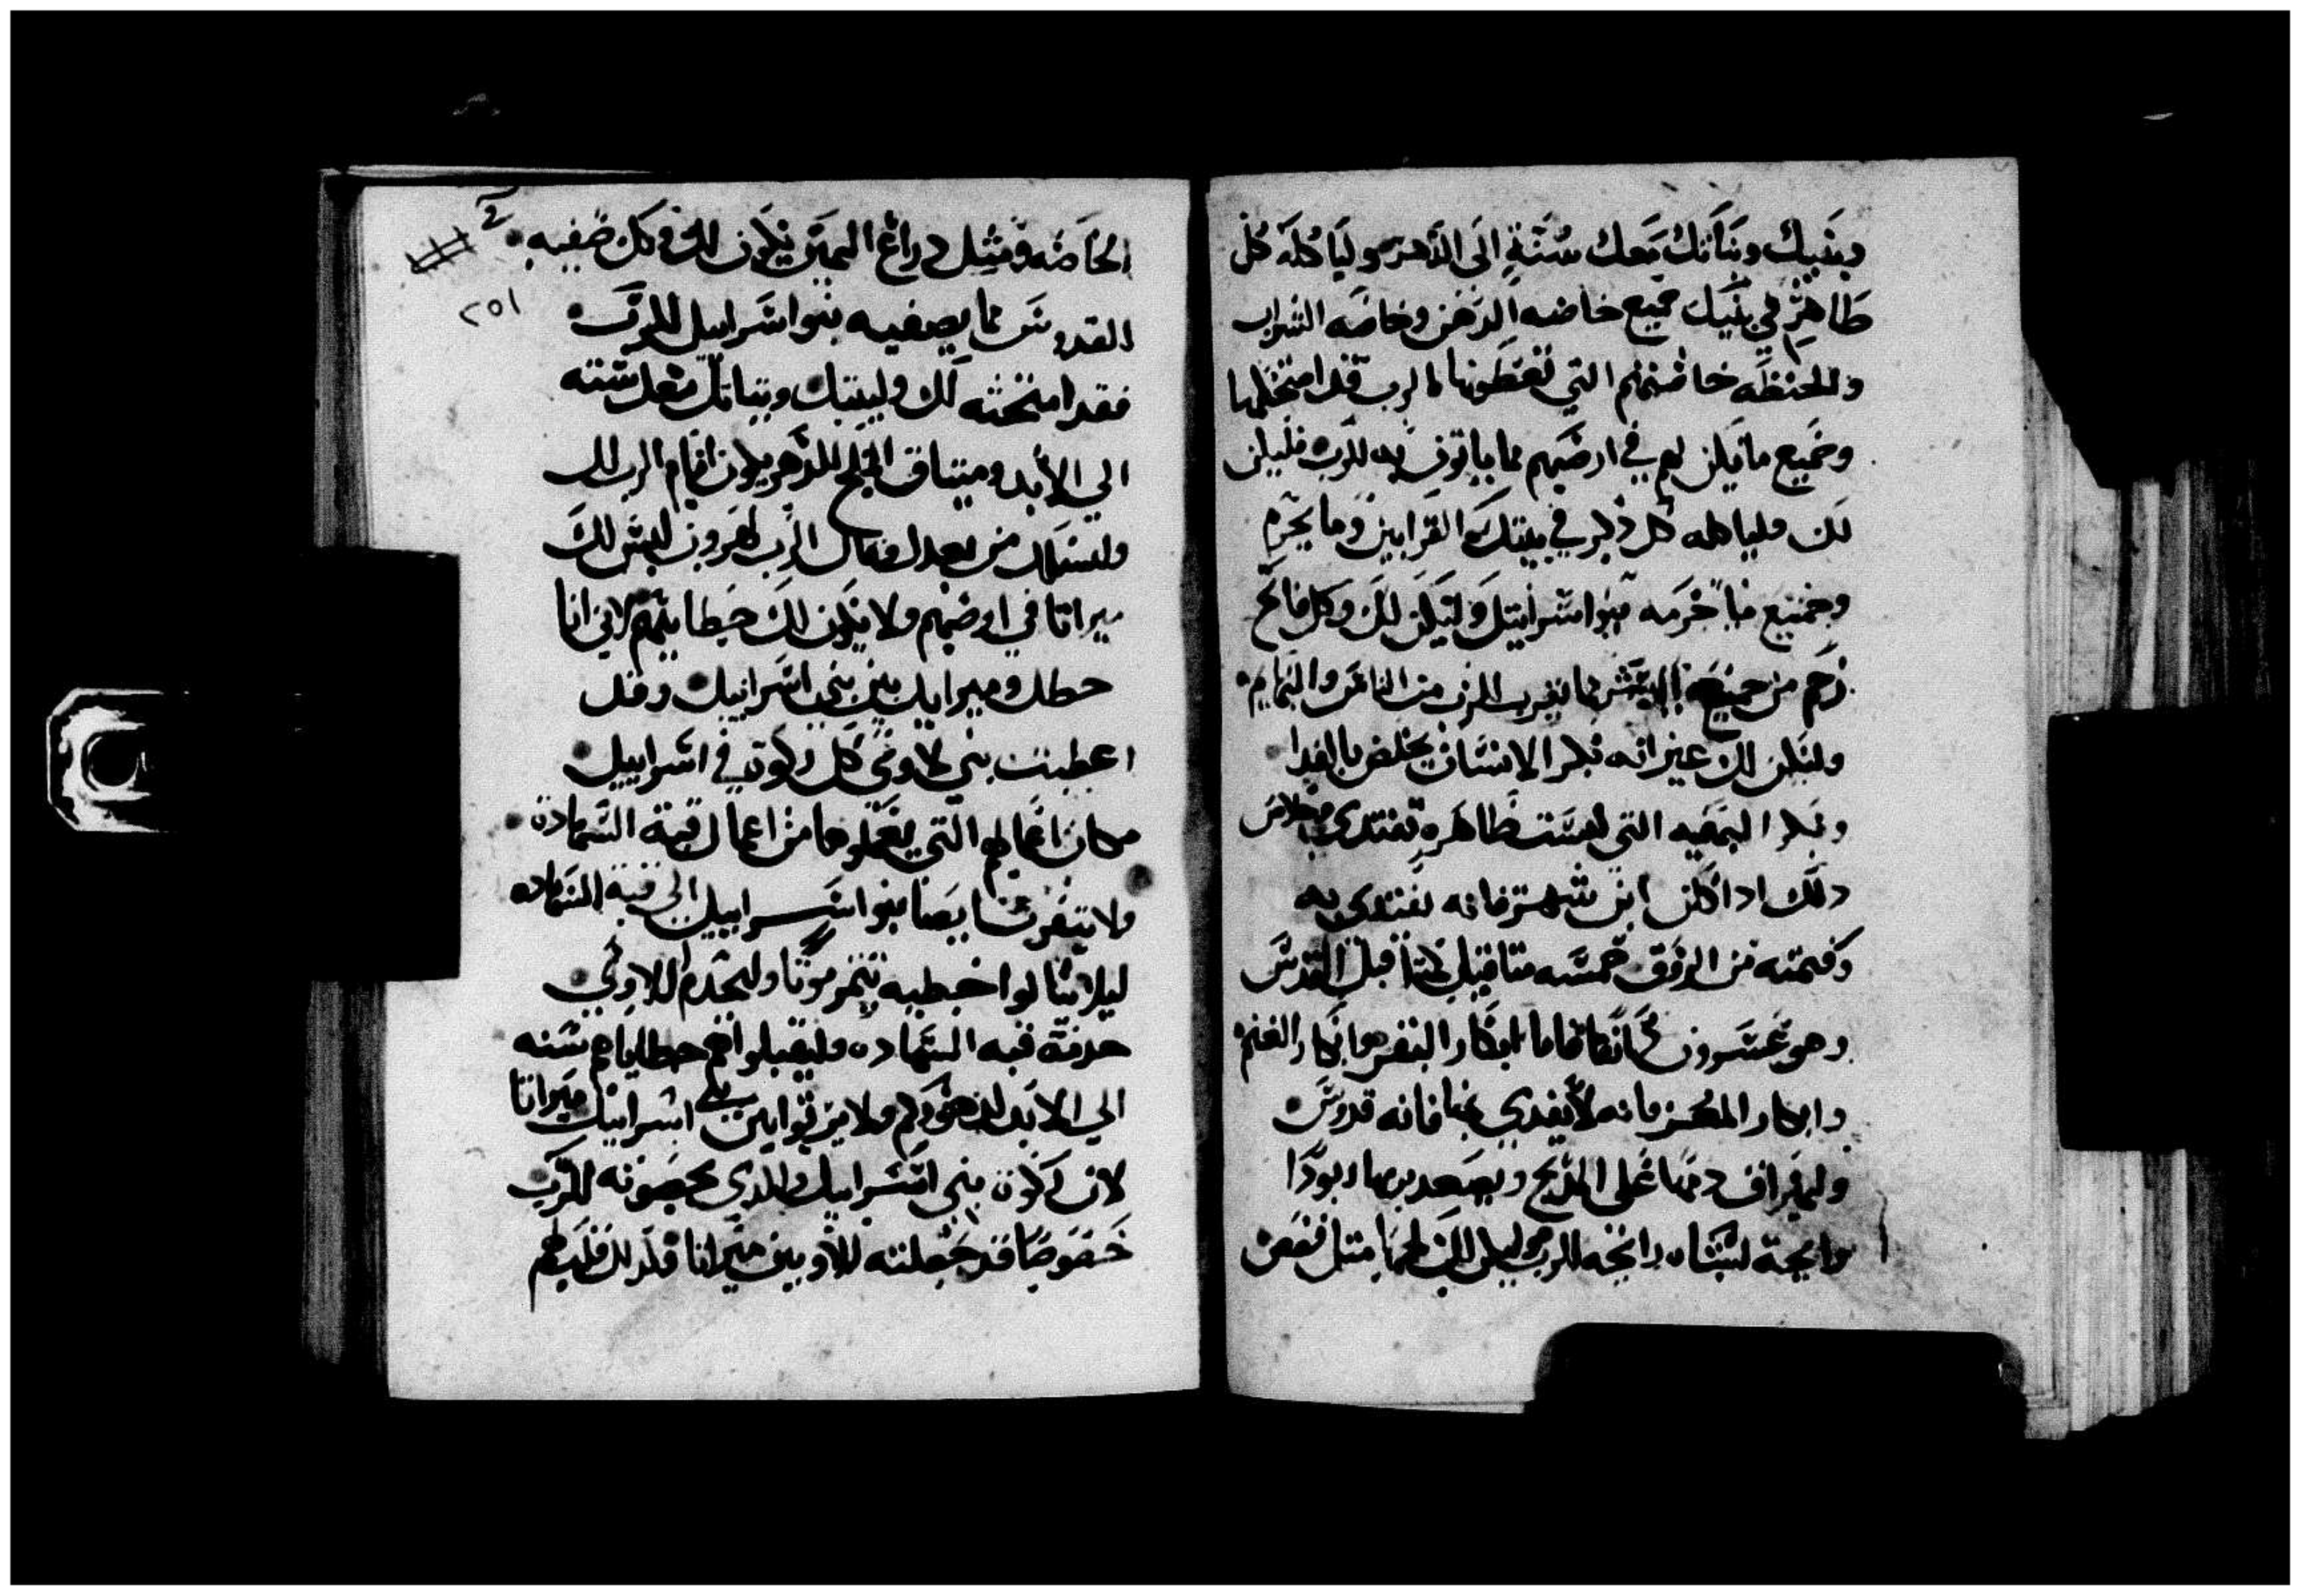 وبنيك وبناتك معك سنة الى الدهر ولياكله كل
طاهر في بيتك جميع خاصه الدهن وخاصه الشراب
والحنطه خاصتهم التي تعطونها للرب قد امتحتكها
وجميع ما يكن لهم في ارضهم مما ياتون به للرب فليكن
لك ولياكله كل ذكر في بيتك القرابين وما يحرم
وجميع ما خرمه بنوا اسراييل وليكن لك وكل فاتح
رحم من جميع البشر مما يقرب للرب من الناس والبهايم
وليكن لك غير انه بكر الانسان يخلص بالفدا
وبكر البهيمه التي ليست طاهره تفتدي بخلاص
ذلك اذا كان ابن شهر فانه تفتدي به
وقيمته من الورق خمسه مثاقيل مثاقيل القدس
وهو عشرون فاما ابكار البقر وابكار الغنم
وابكار المعز فانه لا يفدي بها فانه قدوس
وليهراق دمها على المذبح ويصعد بربها ربودا
رايحة لبناه رايحه للرب وليكن لك لحمها مثل قص
الخاصه ومثل دراع اليمين يكون لك وكل صفيه
٢٥١
القدوس مما يصفيه بنوا اسراييل للرب
فقد امتحته لك ولبنيك وبناتك معك سنه
الي الابد وميثاق الملح للدهر يكون امام الرب لك
ولنسلك من بعدك وقال الرب لهرون ليس لك
ميراثا في ارضهم ولا يكون لك حظا بينهم لاني انا
حظك وميراثك بين بني اسراييل وقد
اعطيت بني لاوي كل زكوة في اسراييل
مكان اعمالهم التي يعملوها من اعمال قبة الشهادة
ولا يتقرب ايضا بنوا اسراييل الى قبة الشهاده
ليلا ينالوا خطيه تتمر موتا وليخدم اللاوي
خدمة قبه الشهاده وليقبلوا هم خطاياهم سنه
الي الابد لدهوركم ولا يرثوا بين بني اسراييل ميراثا
لان زكوة بني اسراييل الذي يخصونه للرب
خصوصا قد جعلته للاويين ميراثا فلذلك قلت لهم